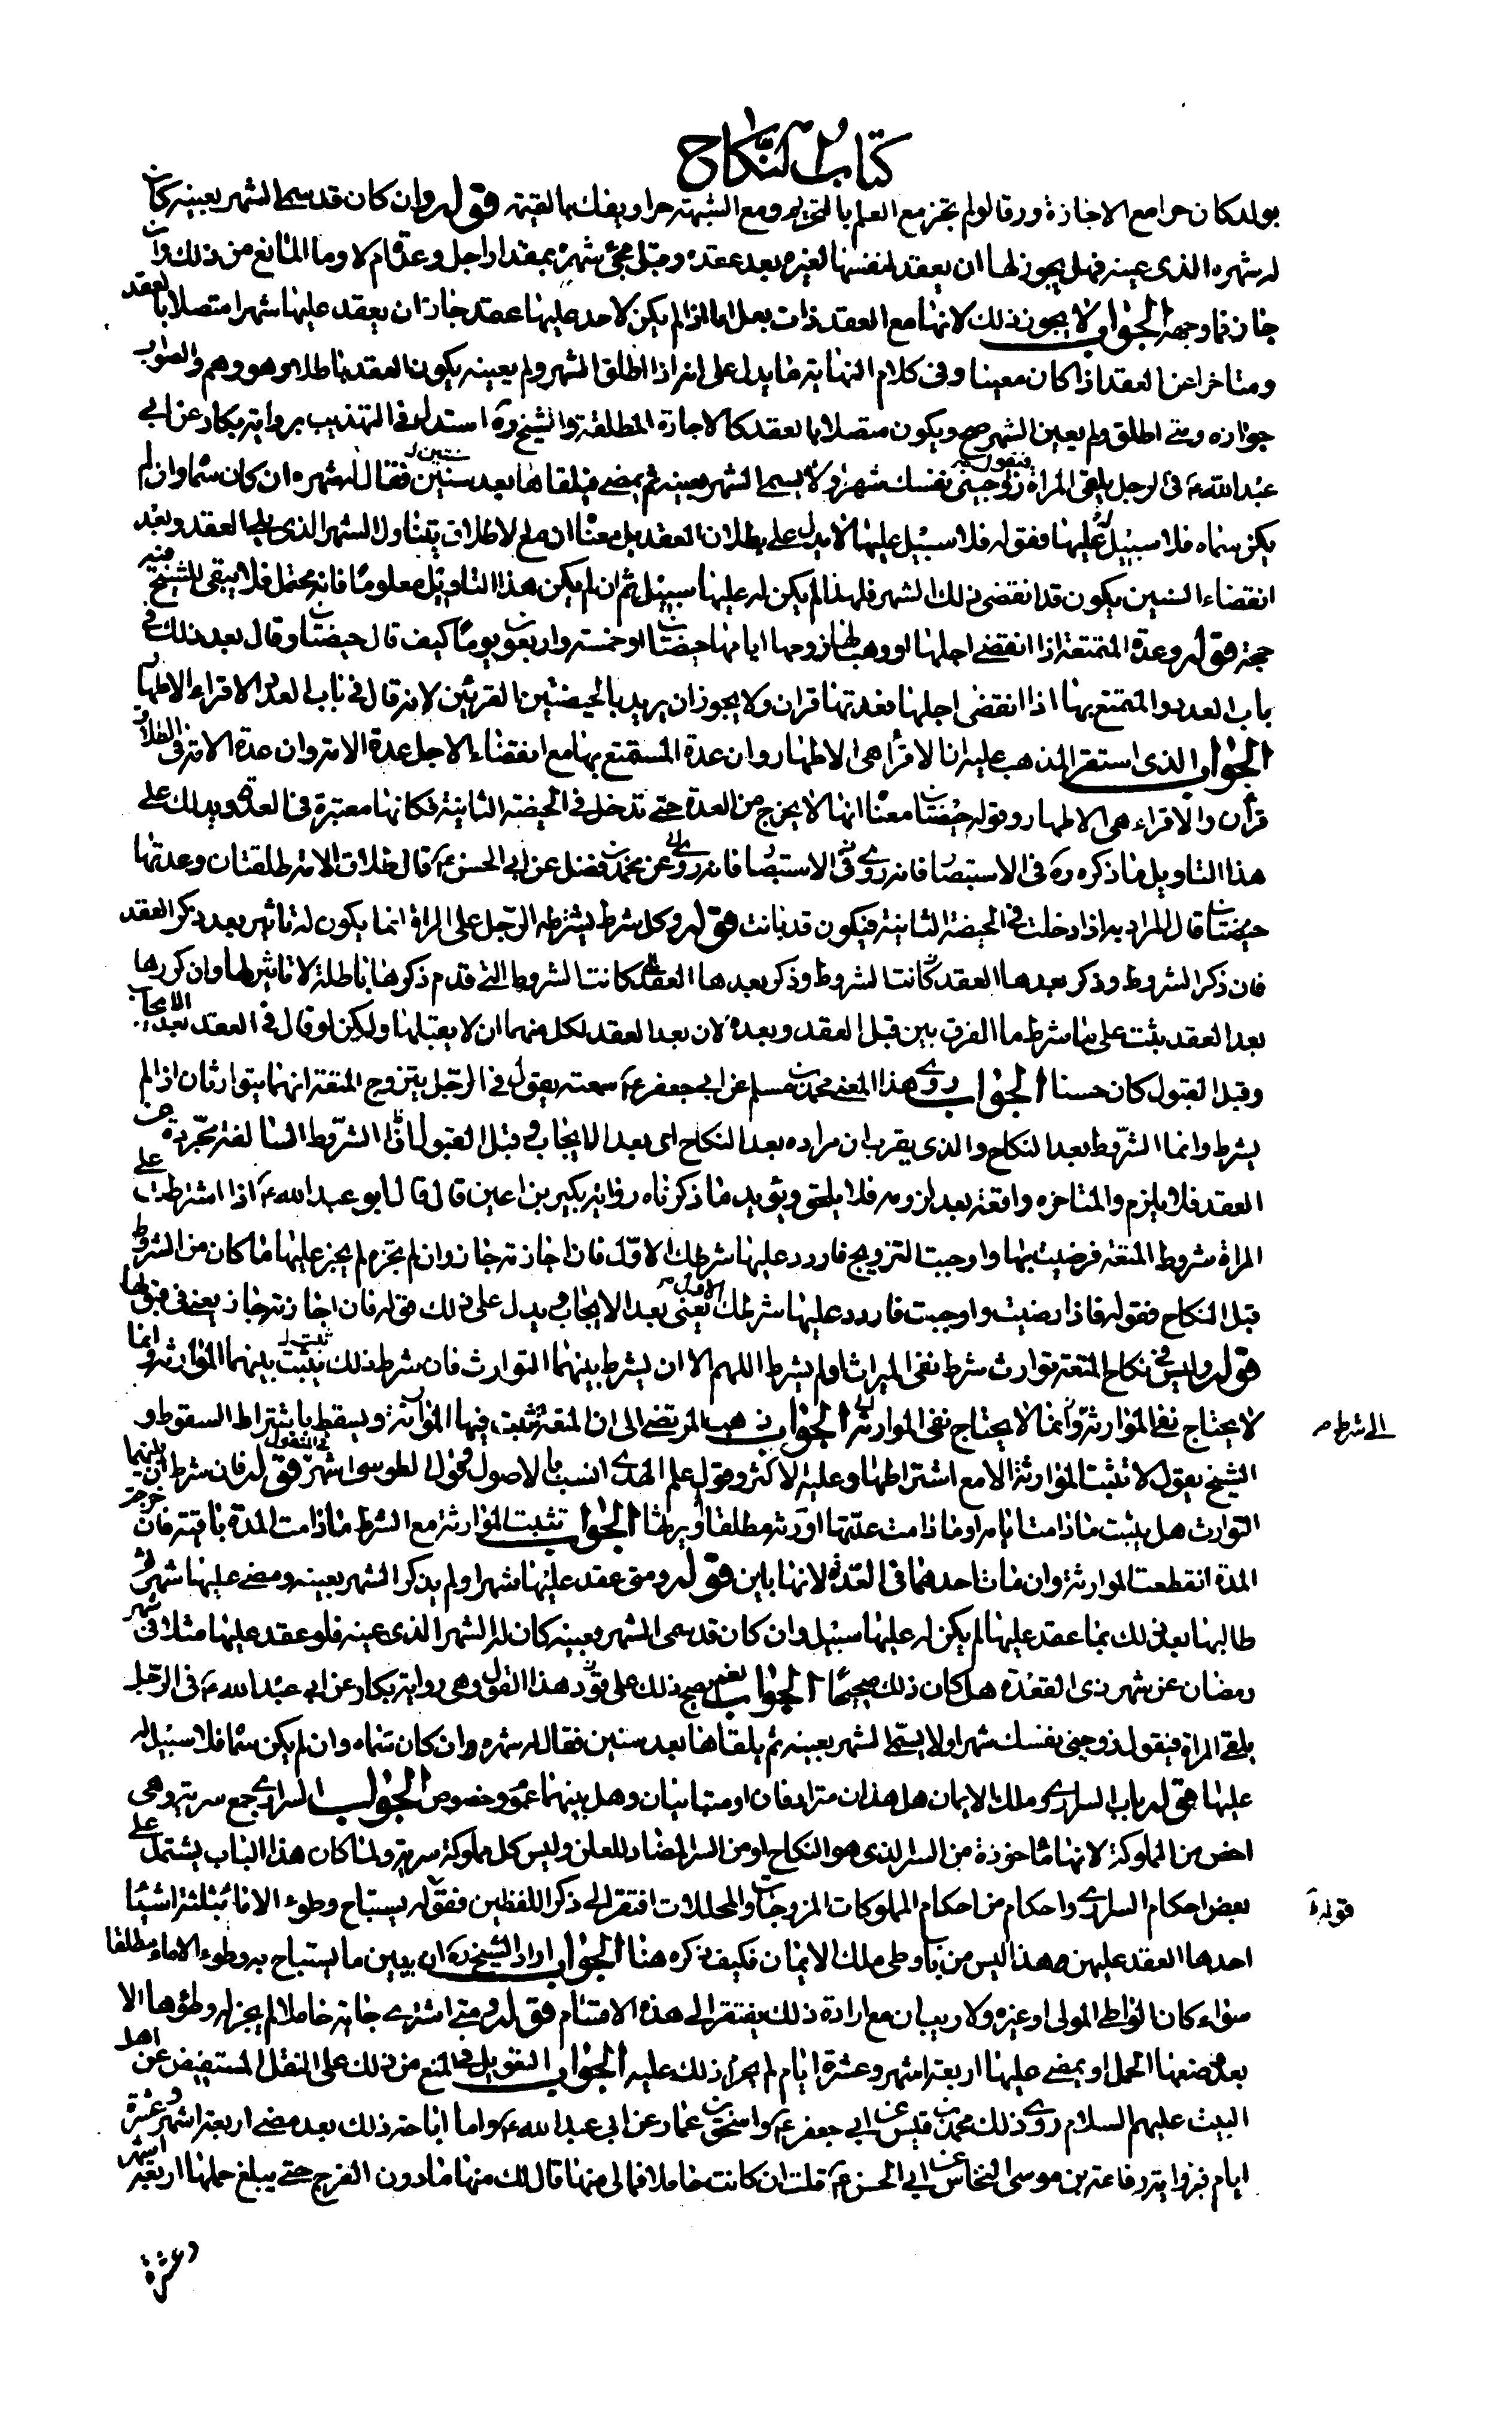 كتاب النكاح
بولد كان حرا مع الاجازة ورقا لو لم تجز مع العلم بالتحريم ومع الشبهة حرا ويفك بالقيمة قوله وان كان قد سمى الشهر بعينه كان
له شهره الذى عينه فهل يجوز لها ان يعقد لنفسها لغيره بعد عقده وقبل مجئ شهره بمقدار اجل وعدة ام لا وما المانع من ذلك وان
جاز فما وجهه الجواب لا يجوز ذلك لانها مع العقد ذات بعل اما اذا لم يكن لاحد عليها عقد جاز ان يعقد عليها شهرا متصلا بالعقد
ومتاخرا عن العقد اذا كان معينا وفى كلام النهاية ما يدل على انه اذا اطلق الشهر ولم يعينه يكون العقد باطلا وهو وهم والصواب
جوازه ومتى اطلق ولم يعين الشهر صح ويكون متصلا بالعقد كالاجارة المطلقة والشيخ ره استدل فى التهذيب برواية بكار عن ابى
عبد الله ع فى الرجل يلقى المراة فيقول زوجينى نفسك شهرا ولا يسمى الشهر بعينه ثم يمضى فيلقاها بعد سنين فقال له شهره ان كان سماه وان لم
يكن سماه فلا سبيل له عليها فقوله فلا سبيل عليها لا يدل على بطلان العقد بل معناه ان مع الاطلاق يتناول الشهر الذى يلى العقد وبعد
انقضاء السنين يكون قد انقضى ذلك الشهر فلهذا لم يكن له عليها سبيل ثم ان لم يكن هذا التاويل معلوما فانه محتمل فلا يبقى للشيخ فيه
حجة قوله وعدة المتمتعة اذا انقضى اجلها او وهب لها زوجها ايامها حيضتان او خمسة واربعون يوما كيف قال حيضتان وقال بعد ذلك فى
باب العدد والمتمتع بها اذا انقضى اجلها فعدتها قران ولا يجوز ان يريد بالحيضتين القرئين لانه قال فى باب العدد الاقراء الاطهار
الجواب الذى استقر المذهب عليه ان الاقرأ هى الاطهار وان عدة المستمتع بها مع انقضاء الاجل عدة الامة وان عدة الامة فى الطلاق
قرأن والاقراء هى الاطهار وقوله حيضتان معناه انها لا يخرج من العدة حتى تدخل فى الحيضة الثانية فكانها معتبرة فى العدة ويدلك على
هذا التاويل ما ذكره ره فى الاستبصار فانه روى فى الاستبصار فانه روى عن محمد بن فضل عن ابى الحسن ع قال طلاق الامة طلقتان وعدتها
حيضتان قال المراد به اذا دخلت فى الحيضة الثانية فيكون قد بانت قوله وكل شرط يشترطه الرجل على المراة انما يكون له تاثير بعد ذكر العقد
فان ذكر الشروط وذكر بعدها العقد كانت الشروط وذكر بعدها العقد كانت الشروط التى قدم ذكرها باطلة لا تاثير لها وان كررها
بعد العقد يثبت على ما شرط ما الفرق بين قبل العقد وبعده لان بعد العقد لكل منهما ان لا يقبلها وليكن لو قال فى العقد بعد الايجاب
وقبل القبول كان حسنا الجواب روى هذا المعنى محمد بن مسلم عن ابى جعفر ع سمعته يقول فى الرجل يتزوج المتعة انهما يتوارثان اذا لم
يشرط وانما الشروط بعد النكاح والذى يقرب ان مراده بعد النكاح اى بعد الايجاب وقبل القبول اذ الشروط السالفة مجردة عن
العقد فلا يلزم والمتاخره واقعة بعد لزومه فلا يلحق ويؤيد ما ذكرناه رواية بكير بن اعين قال قال ابو عبد الله ع اذا اشترطت على
المراة شروط المتعة فرضيت بها واوجبت التزويج فاردد عليها شرطك الاول فان اجازته جاز وان لم تجزه لم يجز عليها ما كان من الشروط
قبل النكاح فقوله فاذا رضيت واوجبت فاردد عليها شرطك الاول يعنى بعد الايجاب ويدل على ذلك قوله فان اجازته جاز يعنى فى قبولها
قوله وليس فى نكاح المتعة توارث شرط نفى الميراث او لم يشرط اللهم الا ان يشرط بينهما التوارث فان شرط ذلك يثبت بينهما الموارثة وانما
لا يحتاج نفى الموارثة وانما لا يحتاج نفى الموارثة الى الشرط الجواب ذهب المرتضى الى ان المتعة يثبت فيها الموارثة ويسقط باشتراط السقوط و
الشيخ يقول لا تثبت الموارثة الا مع اشتراطها وعليه الاكثر وقول علم الهدى انسب بالاصول وقول الطوسى اشهر فى النقول قوله فان شرط ان بينهما
التوارث هل يثبت ما دامت ايامه او ما دامت عدتها او ترثه مطلقا ويرثها الجواب تثبت الموارثة مع الشرط ما دامت المدة باقية فان خرجت
المدة انقطعت الموارثة وان مات احدهما فى العدة لانها باين قوله ومتى عقد عليها شهرا ولم يذكر الشهر بعينه ومضى عليها شهر ثم
طالبها بعد ذلك بما عقد عليها لم يكن له عليها سبيل وان كان قد سمى الشهر بعينه كان له الشهر الذى عينه فلو عقد عليها مثلا فى شهر
رمضان عن شهر ذى القعدة هل كان ذلك صحيحا الجواب نعم يصح ذلك على قود هذا القول وهى رواية بكار عن ابى عبد الله ع فى الرجل
يلقى المراة فيقول زوجنى نفسك شهرا ولا يسمى الشهر بعينه ثم يلقاها بعد سنين فقال له شهره وان كان سماه وان لم يكن سماه فلا سبيل له
عليها قوله باب السرارى وملك الايمان هل هذان مترادفان او متباينان وهل بينهما عموم وخصوص الجواب السرارى جمع سرية وهى
اخص من المملوكة لانها ماخوذة من السر الذى هو النكاح او من السر المضاد للعلن وليس كل مملوكة سرية ولما كان هذا الباب يشتمل على
بعض احكام السرارى واحكام من احكام المملوكات المزوجات والمحللات افتقر الى ذكر اللفظين فقوله يستباح وطوء الاماء بثلثة اشياء
احدها العقد عليهن وهذا ليس من باب وطى ملك الايمان فكيف ذكره هنا الجواب اراد الشيخ ره ان يبين ما يستباح به وطوء الاماء مطلقا
سواء كان الواطى المولى او غيره ولا ريب ان مع ارادة ذلك يفتقر الى هذه الاقسام قوله ومتى اشترى جارية حاملا لم يجز له وطؤها الا
بعد وضعها الحمل او يمضى عليها اربعة اشهر وعشرة ايام لم يحرم ذلك عليه الجواب التعويل فى المنع من ذلك على النقل المستفيض عن اهل
البيت عليهم السلام روى ذلك محمد بن قيس عن ابى جعفر ع واسحق بن عمار عن ابى عبد الله ع واما اباحة ذلك بعد مضى اربعة اشهر وعشرة
ايام فبرواية رفاعة بن موسى النخاس عن ابى الحسن ع قلت ان كانت حاملا فمالى منها قال لك منها ما دون الفرج حتى يبلغ حملها اربعة اشهر
وعشرة
الى الشرط
قوله